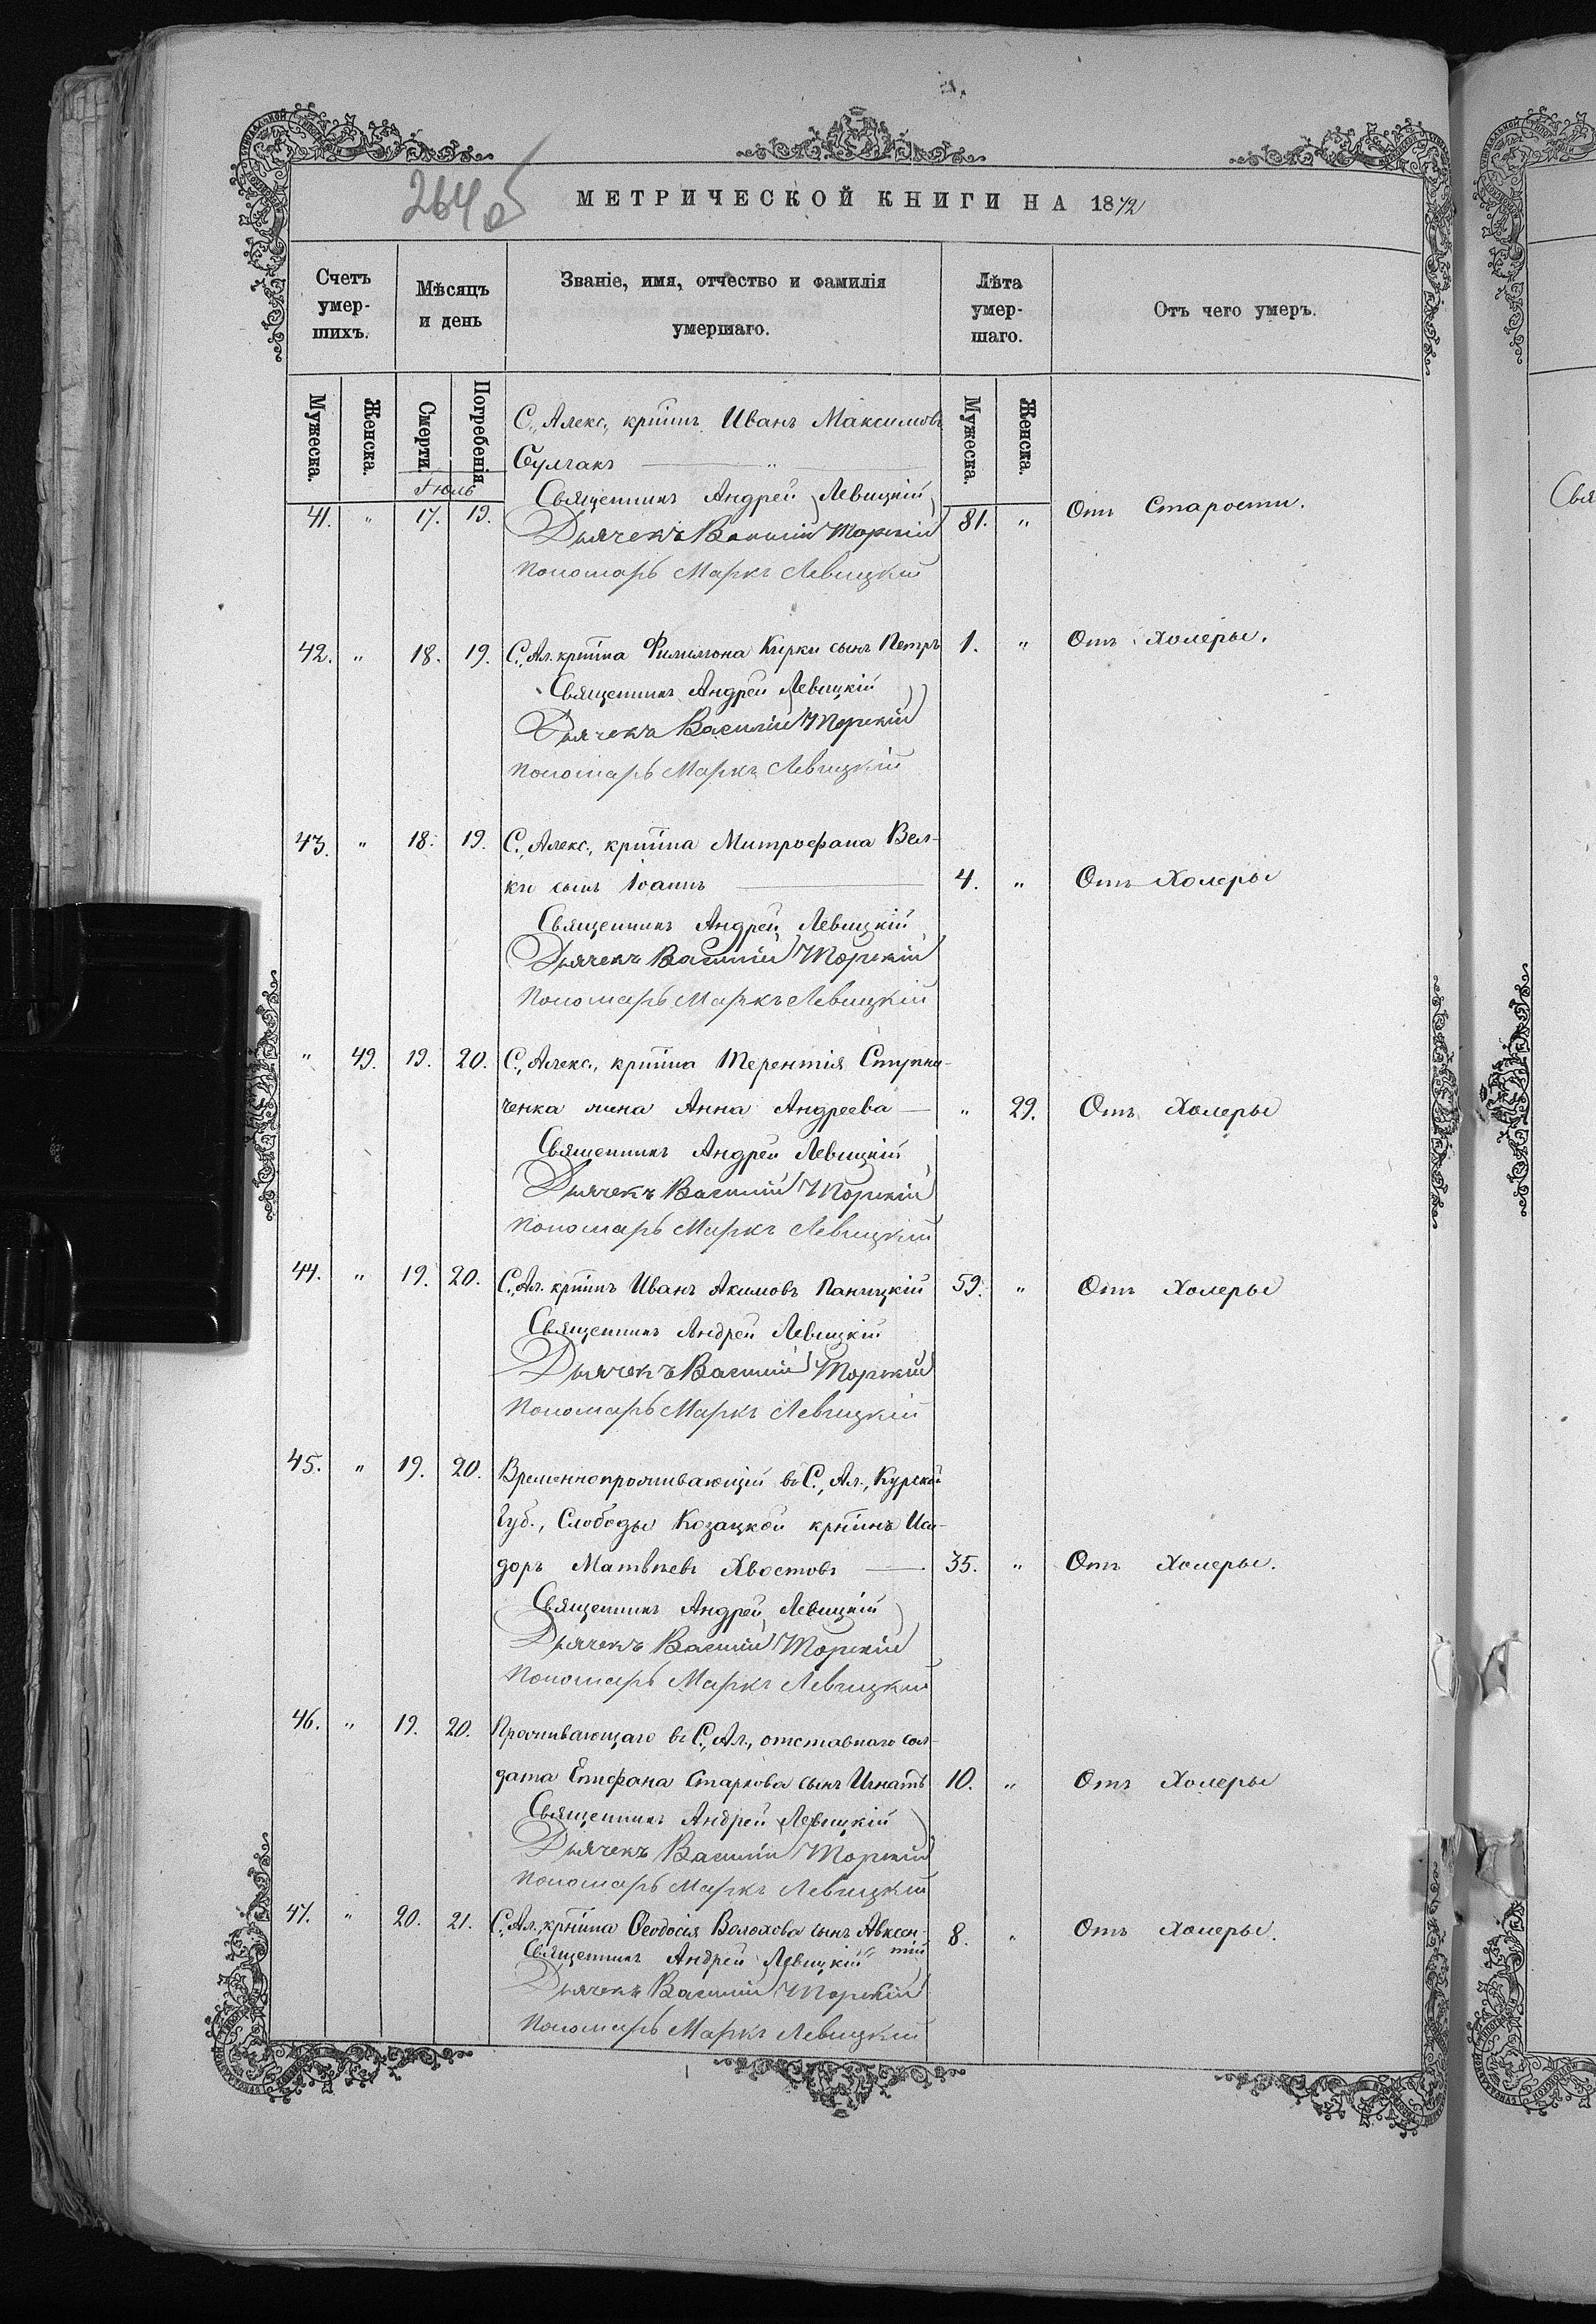 264об
МЕТРИЧЕСКОЙ КНИГИ НА 1872
Счетъ умер-шихъ.
Мѣсяцъ и день
Званіе, имя, отчество и фамилія умершаго.
Лѣта умер-шаго.
Отъ чего умеръ.
Мужеска. Женска. Смерти. Погребенія Мужеска. Женска.
Іюль
С., Алекс., кр̃тинъ Иванъ Максимовъ
41. " 17. 19. 81. " Отъ Старости.
Священникъ Андрей Левицкій
Дьячекъ Василій Торскій
Пономарь Маркъ Левицкій
42. " 18. 19. С., Ал. кр̃тина Филимона Кирки сынъ Петръ 1. " Отъ Холеры.
Священникъ Андрей Левицкій
Дьячекъ Василій Торскій
Пономарь Маркъ Левицкій
43. " 18. 19. С., Алекс., кр̃тина Митрофана Вел-
ки сынъ Іоаннъ 4. " Отъ Холеры
Священникъ Андрей Левицкій
Дьячекъ Василій Торскій
Пономарь Маркъ Левицкій
" 49. 19. 20. С., Алекс., кр̃тина Терентія Ступни-
ченка жена Анна Андреева " 29. Отъ Холеры
Священникъ Андрей Левицкій
Дьячекъ Василій Торскій
Пономарь Маркъ Левицкій
44. " 19. 20. С., Ал. кр̃тинъ Иванъ Акимовъ Паницкій 59. " Отъ Холеры
Священникъ Андрей Левицкій
Дьячекъ Василій Торскій
Пономарь Маркъ Левицкій
45. " 19. 20. Временнопроживающій въ С., Ал., Курской
Губ., Слободы Козацкой кр̃тинъ Иси-
доръ Матвѣевъ Хвостовъ 35. " Отъ Холеры.
Священникъ Андрей Левицкій
Дьячекъ Василій Торскій
Пономарь Маркъ Левицкій
46. " 19. 20. Проживающаго въ С., Ал., отставнаго сол-
дата Епифана Старкова сынъ Игнатъ 10. " Отъ Холеры
Священникъ Андрей Левицкій
Дьячекъ Василій Торскій
Пономарь Маркъ Левицкій
47. " 20. 21. С., Ал. кр̃тина Ѳеодосія Волохова сынъ Авксен-
тій 8. " Отъ Холеры.
Священникъ Андрей Левицкій
Дьячекъ Василій Торскій
Пономарь Маркъ Левицкій